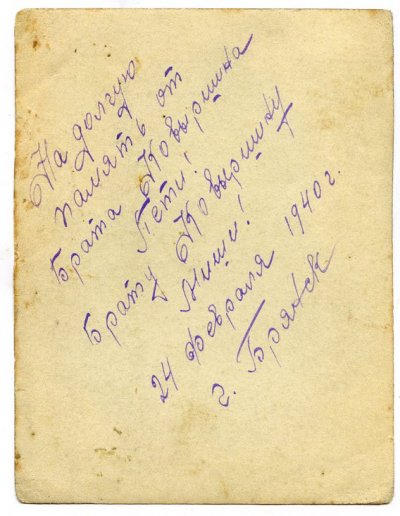 На долгую
память от
брата Ковыршина
Пети!
Брату Ковыршину
Миши!
24 февраля 1940 г.
г. Брянск